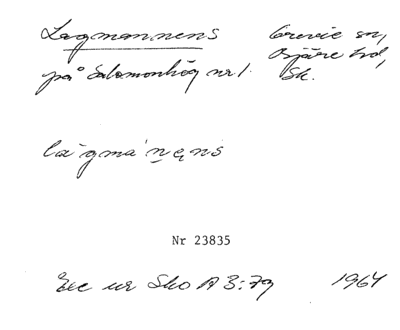 Lagmannens
på Salomonhög nr 1.
Grevie sn,
Bjäre hd,
Sk.
la`gma´nęns
Nr 23835
Exc ur Sko A 3:79 1964